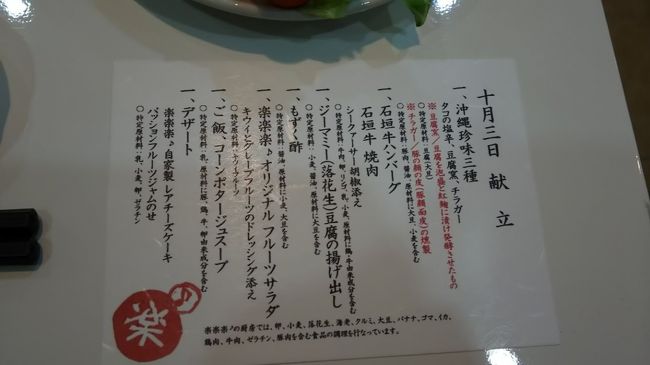 十月三日 献立
一、沖縄珍味三種
タコの塩辛、豆腐窯、チラガー
○特定原材料：豆腐(大豆)
※豆腐窯/豆腐を泡盛と紅麹に漬け発酵させたもの
※チラガー/豚の顔の皮(豚顔面皮)の燻製
○特定原材料：豚肉、醤油、原材料に大豆、小麦を含む
一、石垣牛ハンバーグ
○特定原材料：牛肉、卵、リンゴ、乳、小麦、原材料に鶏・牛由来成分を含む
一、石垣牛 焼肉
シークァーサー胡椒添え
一、ジーマミー(落花生)豆腐の揚げ出し
○特定原材料：小麦、醤油、原材料に大豆を含む
一、もずく酢
○特定原材料：醤油、原材料に小麦、大豆を含む
一、楽楽楽♪オリジナル フルーツサラダ
キウイとグレープフルーツのドレッシング添え
○特定原材料：キウイフルーツ
一、ご飯、コーンポタージュスープ
○特定原材料：乳、原材料に豚、鶏、牛、卵由来成分を含む
一、デザート
楽楽楽♪自家製 レアチーズケーキ
パッションフルーツジャムのせ
○特定原材料：乳、小麦、卵、ゼラチン
楽楽楽♪の厨房では、卵、小麦、落花生、海老、クルミ、大豆、バナナ、ゴマ、イカ、
鶏肉、牛肉、ゼラチン、豚肉を含む食品の調理を行なっています。
の
楽